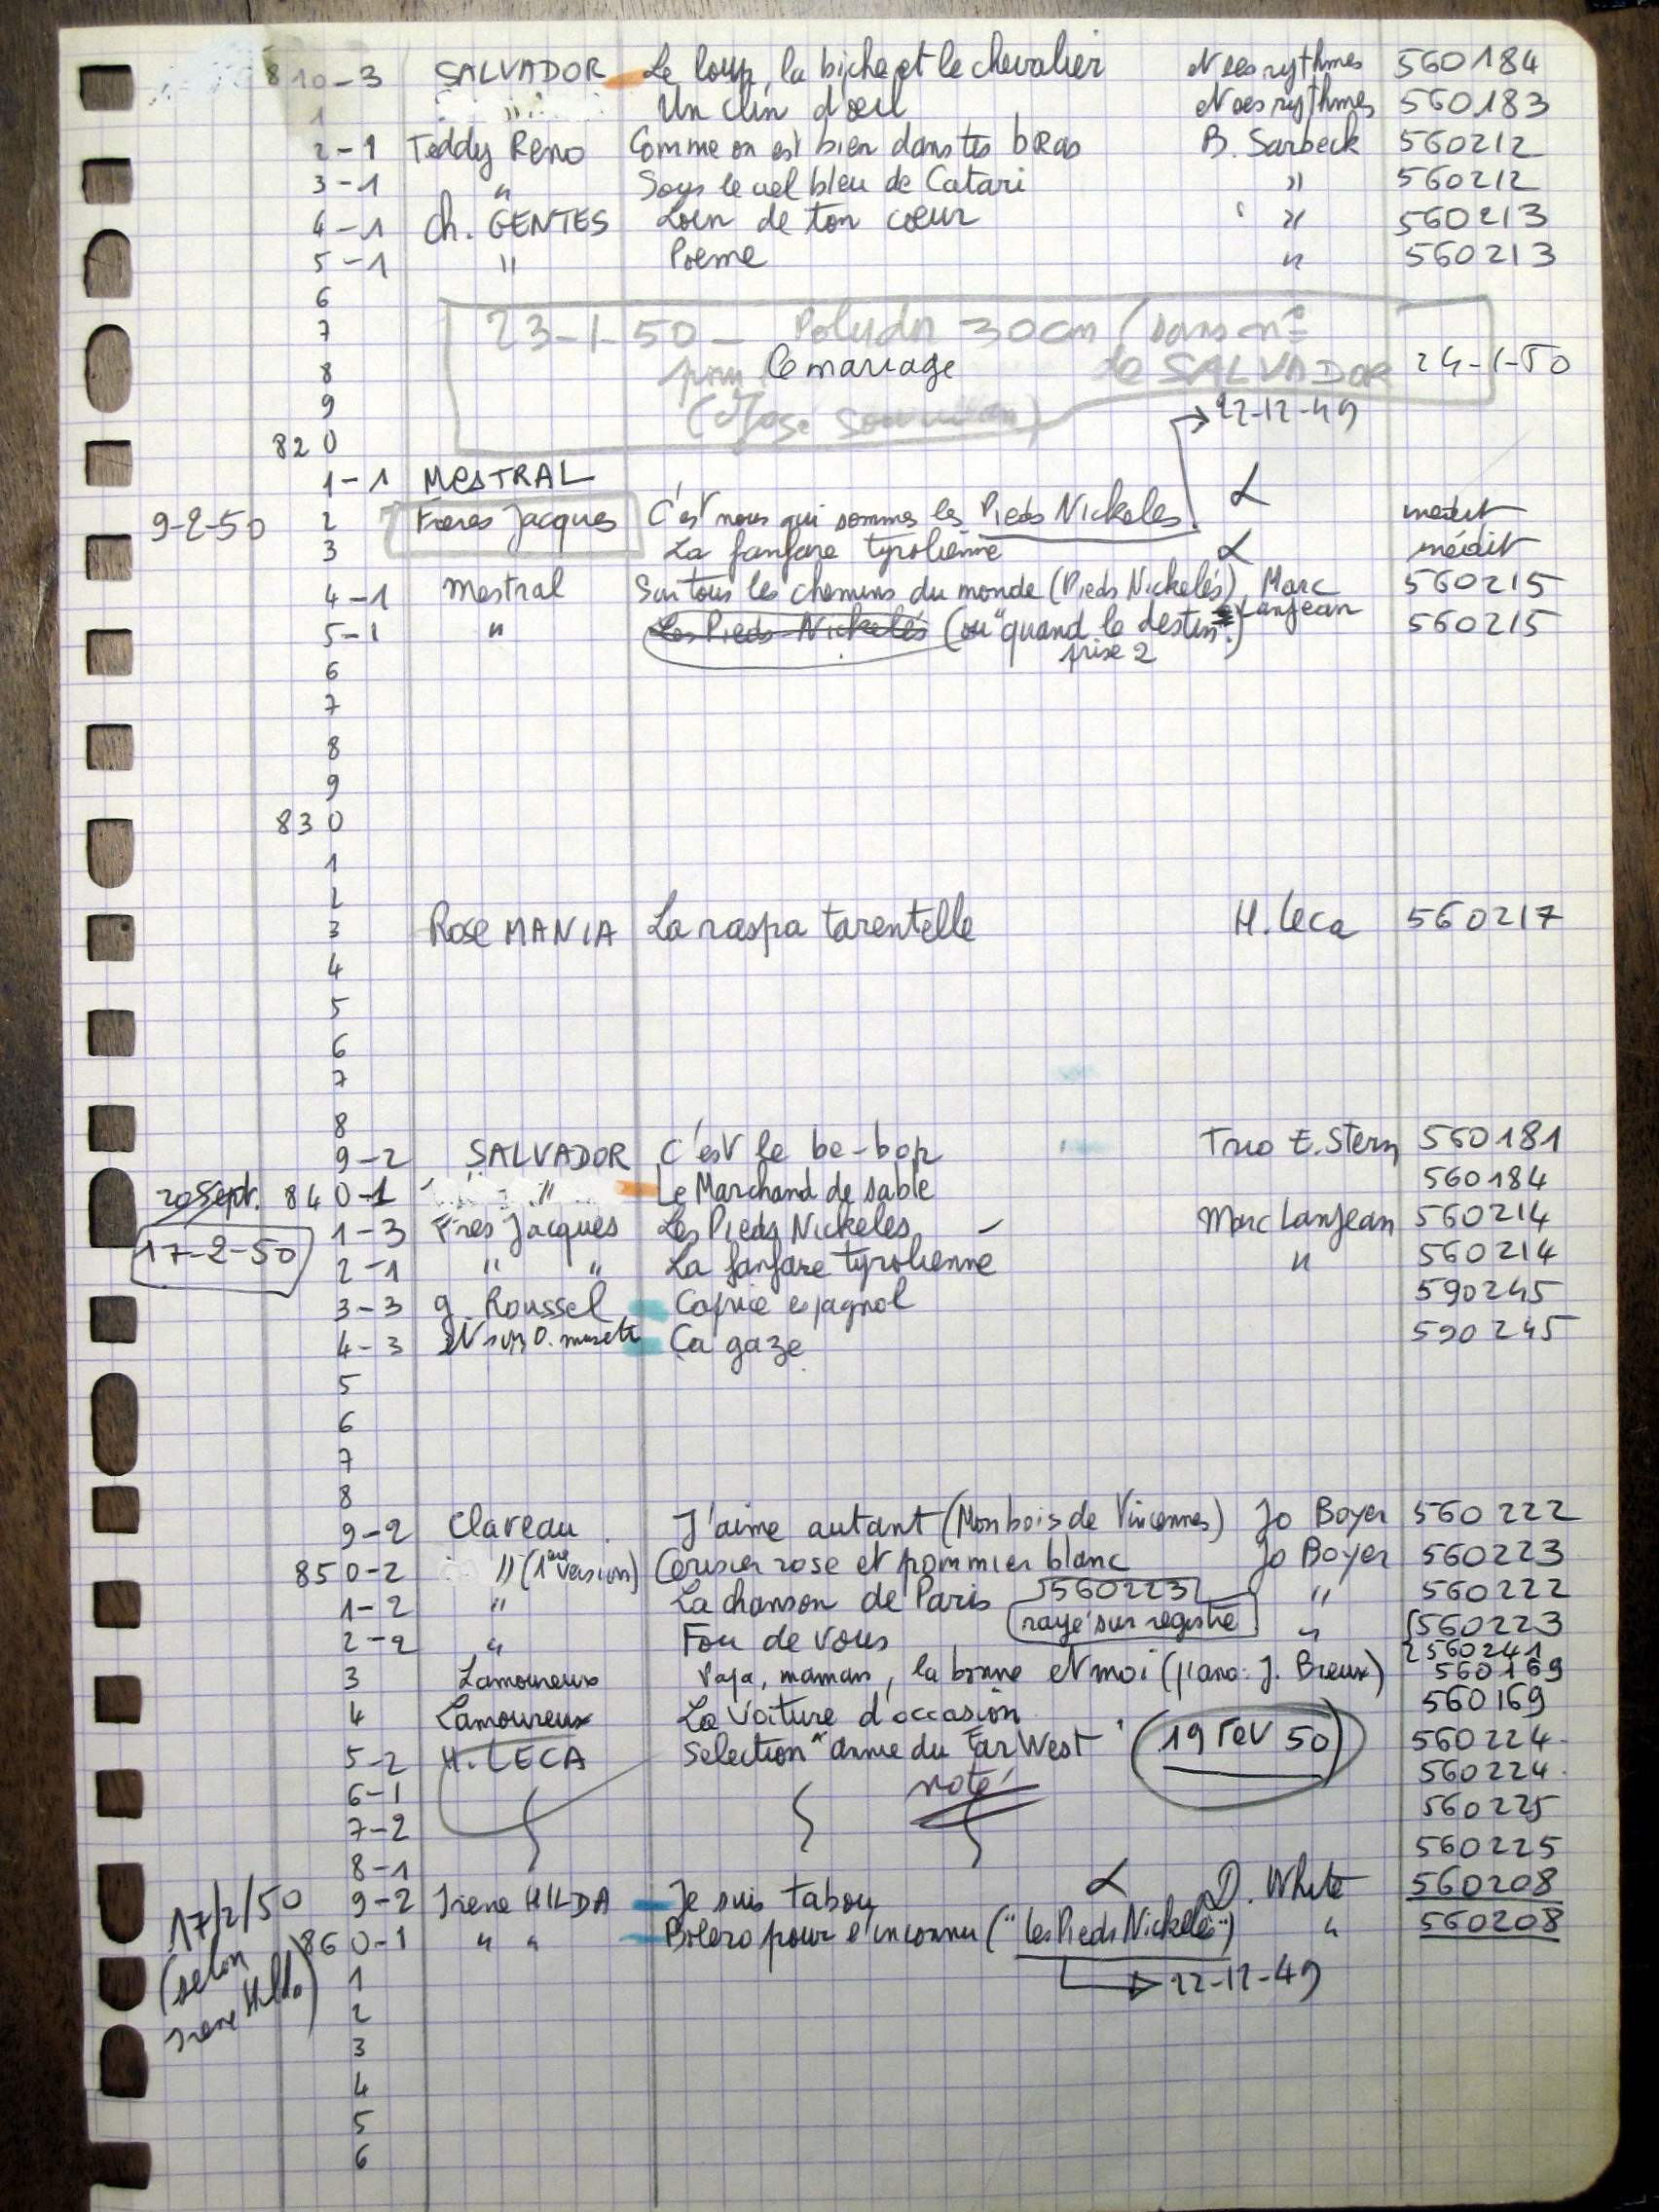 810-3 SALVADOR Le loup, la biche et le chevalier et ses rythmes 560184
1 " Un clin d'œil et ses rythmes 560183
2-1 Teddy Reno Comme on est bien dans tes bras B. Sarbeck 560212
3-1 " Sous le ciel bleu de Catari " 560212
4-1 Ch. GENTES Loin de ton cœur " 560213
5-1 " Poème " 560213
6
7 23-1-50 - Polydor 30cm (sans n°
8 pour le mariage de SALVADOR 24-1-50
9 → 22-12-49
820
1-1 MESTRAL
9-2-50 2 Frères Jacques C'est nous qui sommes les Pieds Nickelés inédit
3 La fanfare tyrolienne inédit
4-1 Mestral Sur tous les chemins du monde (Pieds Nickelés) Marc Lanjean 560215
5-1 " Les Pieds Nickelés (ou "quand le destin") 560215
6 prise 2
7
8
9
830
1
2
3 Rose MANIA La raspa tarentelle H. Leca 560217
4
5
6
7
8
9-2 SALVADOR C'est le be-bop Trio E. Stern 560181
20 Sept. 840-1 " Le Marchand de sable 560184
1-3 Frères Jacques Les Pieds Nickelés - Marc Lanjean 560214
17-2-50 2-1 " " La fanfare tyrolienne " 560214
3-3 g. Roussel Caprice espagnol 590245
4-3 et son O. musette Ça gaze 590245
5
6
7
8
9-2 Claveau J'aime autant (Mon bois de Vincennes) Jo Boyer 560222
850-2 " (1ère version) Cerisier rose et pommier blanc Jo Boyer 560223
1-2 " La chanson de Paris 560223 " 560222
2-2 " Fou de vous rayé sur registre " 560223
560241
3 Lamoureux Papa, maman, la bonne et moi (piano: J. Breux) 560169
4 Lamoureux La voiture d'occasion 560169
5-2 H. LECA Selection "Annie du Far West" (19 Fév 50) 560224
6-1 noté 560224
7-2 560225
8-1 560225
17/2/50 9-2 Irene HILDA Je suis tabou D. White 560208
860-1 " " Bolero pour l'inconnu ("les Pieds Nickelés") " 560208
(selon Irene Hilda) 1 → 22-12-49
2
3
4
5
6